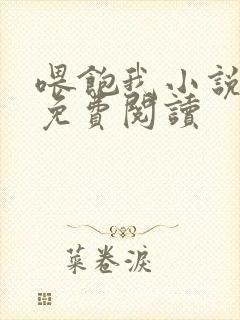 喂飽我 小說
免費閱讀
菜卷淚